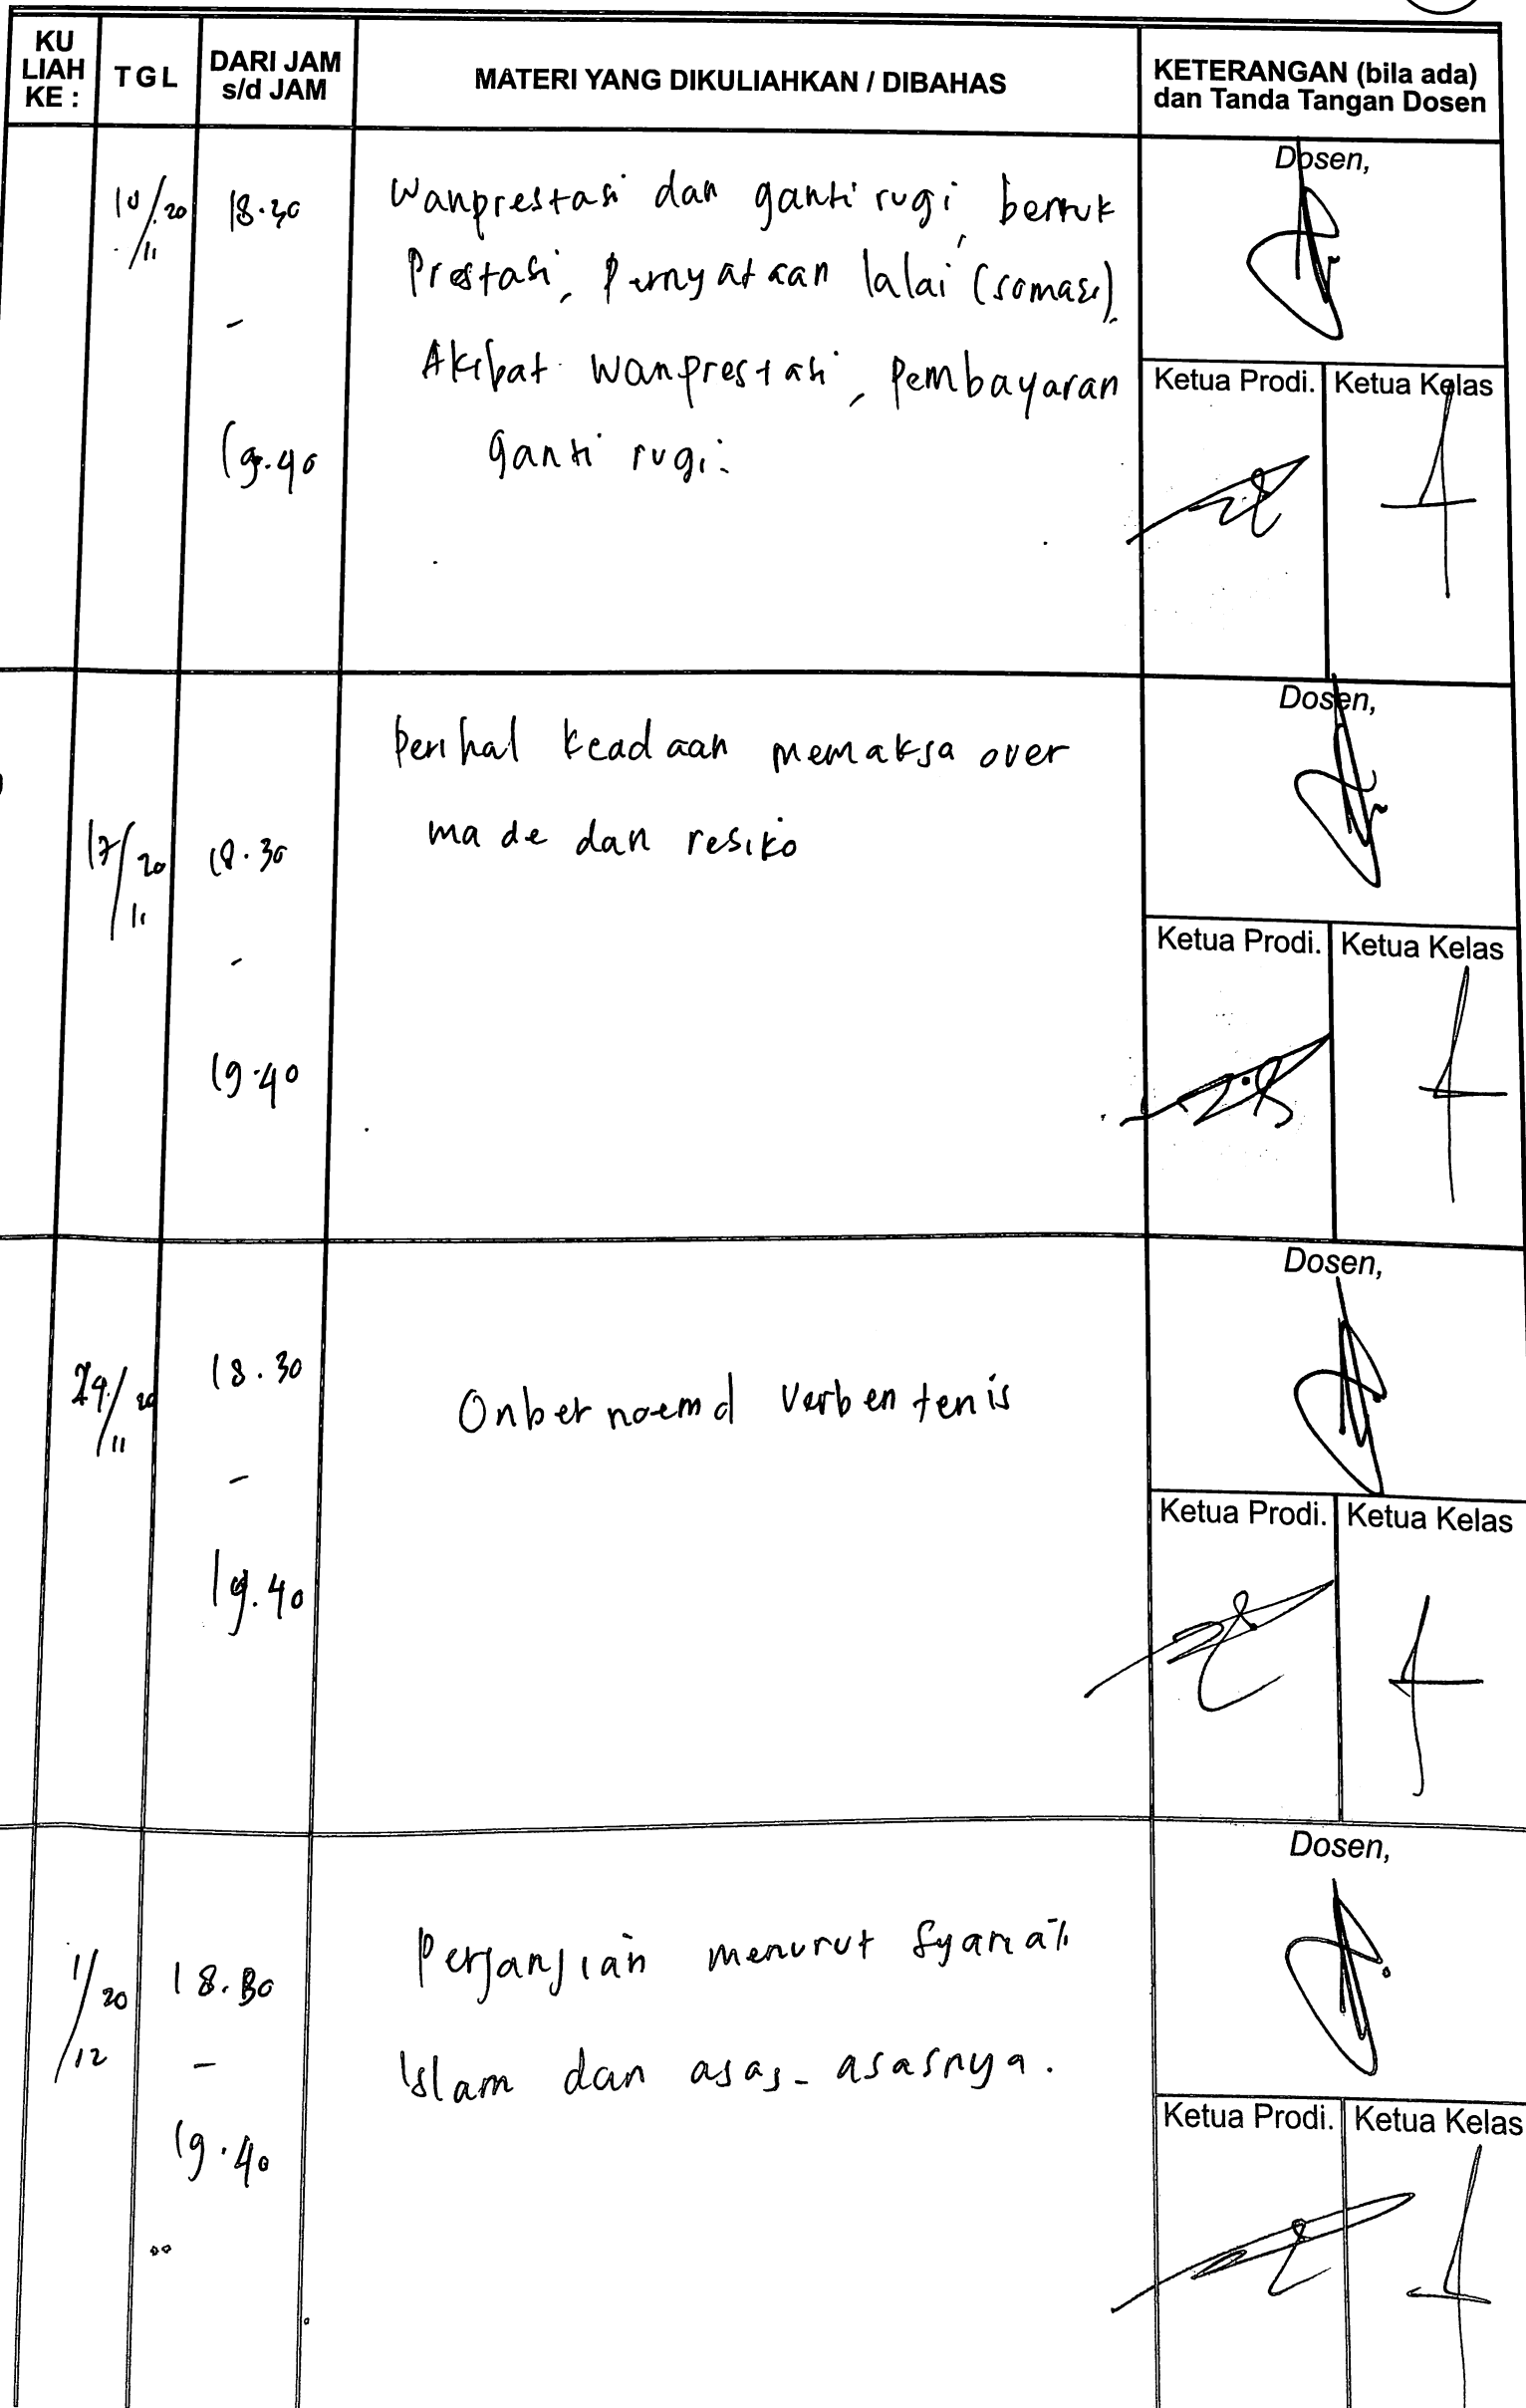 KU LIAH KE :
TGL
DARI JAM s/d JAM
MATERI YANG DIKULIAHKAN / DIBAHAS
KETERANGAN (bila ada) dan Tanda Tangan Dosen
10/20
/11
18.30
-
19.40
Wanprestasi dan ganti rugi, bentuk
Prestasi, Pernyataan lalai (somasi).
Akibat wanprestasi, Pembayaran
ganti rugi.
Dosen,
Ketua Prodi.
Ketua Kelas
17/20
/11
18.30
-
19.40
Perihal keadaan memaksa over
made dan resiko
Dosen,
Ketua Prodi.
Ketua Kelas
24/20
/11
18.30
-
19.40
Onbernoemd Verbentenis
Dosen,
Ketua Prodi.
Ketua Kelas
1/20
/12
18.30
-
19.40
Perjanjian menurut
Islam dan asas-asasnya.
Dosen,
Ketua Prodi.
Ketua Kelas